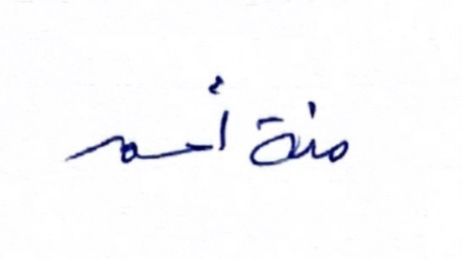 منة أحمد